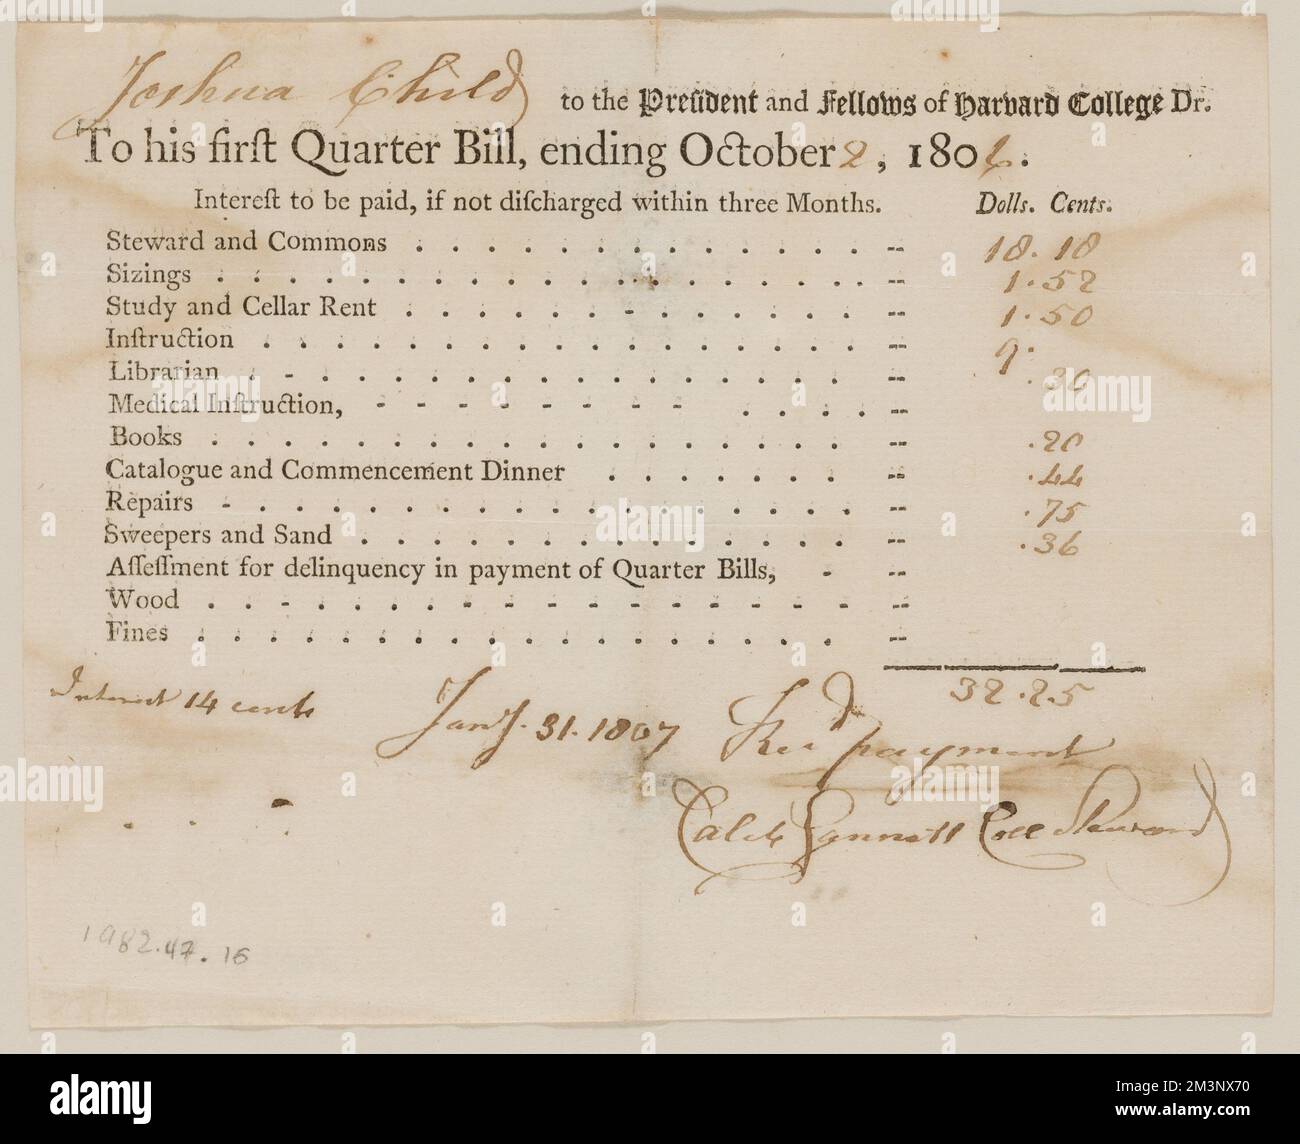 Joshua Child to the Preſident and Fellows of Harvard College Dr.
To his firſt Quarter Bill, ending October 2, 1806.
Intereſt to be paid, if not diſcharged within three Months. Dolls. Cents.
Steward and Commons . . . . . . . . . . . . . . -- 18.18
Sizings . . . . . . . . . . . . . . . . . . . . . -- 1.52
Study and Cellar Rent . . . . . . . - . . . . . . . -- 1.50
Inſtruction . . . . . . . . . . . . . . . . . -- 9.
Librarian . - . . . . . . . . . . . . . . . . -- .30
Medical Inſtruction, - - - - - - - - . . . . --
Books . . . . . . . . . . . . . . . . . . -- .20
Catalogue and Commencement Dinner . . . . . . . -- .44
Repairs - . . . . . . . . . . . . . . . . . -- .75
Sweepers and Sand . . . . . . . . . . . . . . -- .36
Aſſeſſment for delinquency in payment of Quarter Bills, - --
Wood . . - . . . . . . - - - - - - - - - --
Fines . . . . . . . . . . . . . . . . . --
32.25
Interest 14 cents Jany. 31. 1807 Recd payment
Caleb Gannett Coll Steward
1982.47.16
alamy
Image ID: 2M3NX70
www.alamy.com